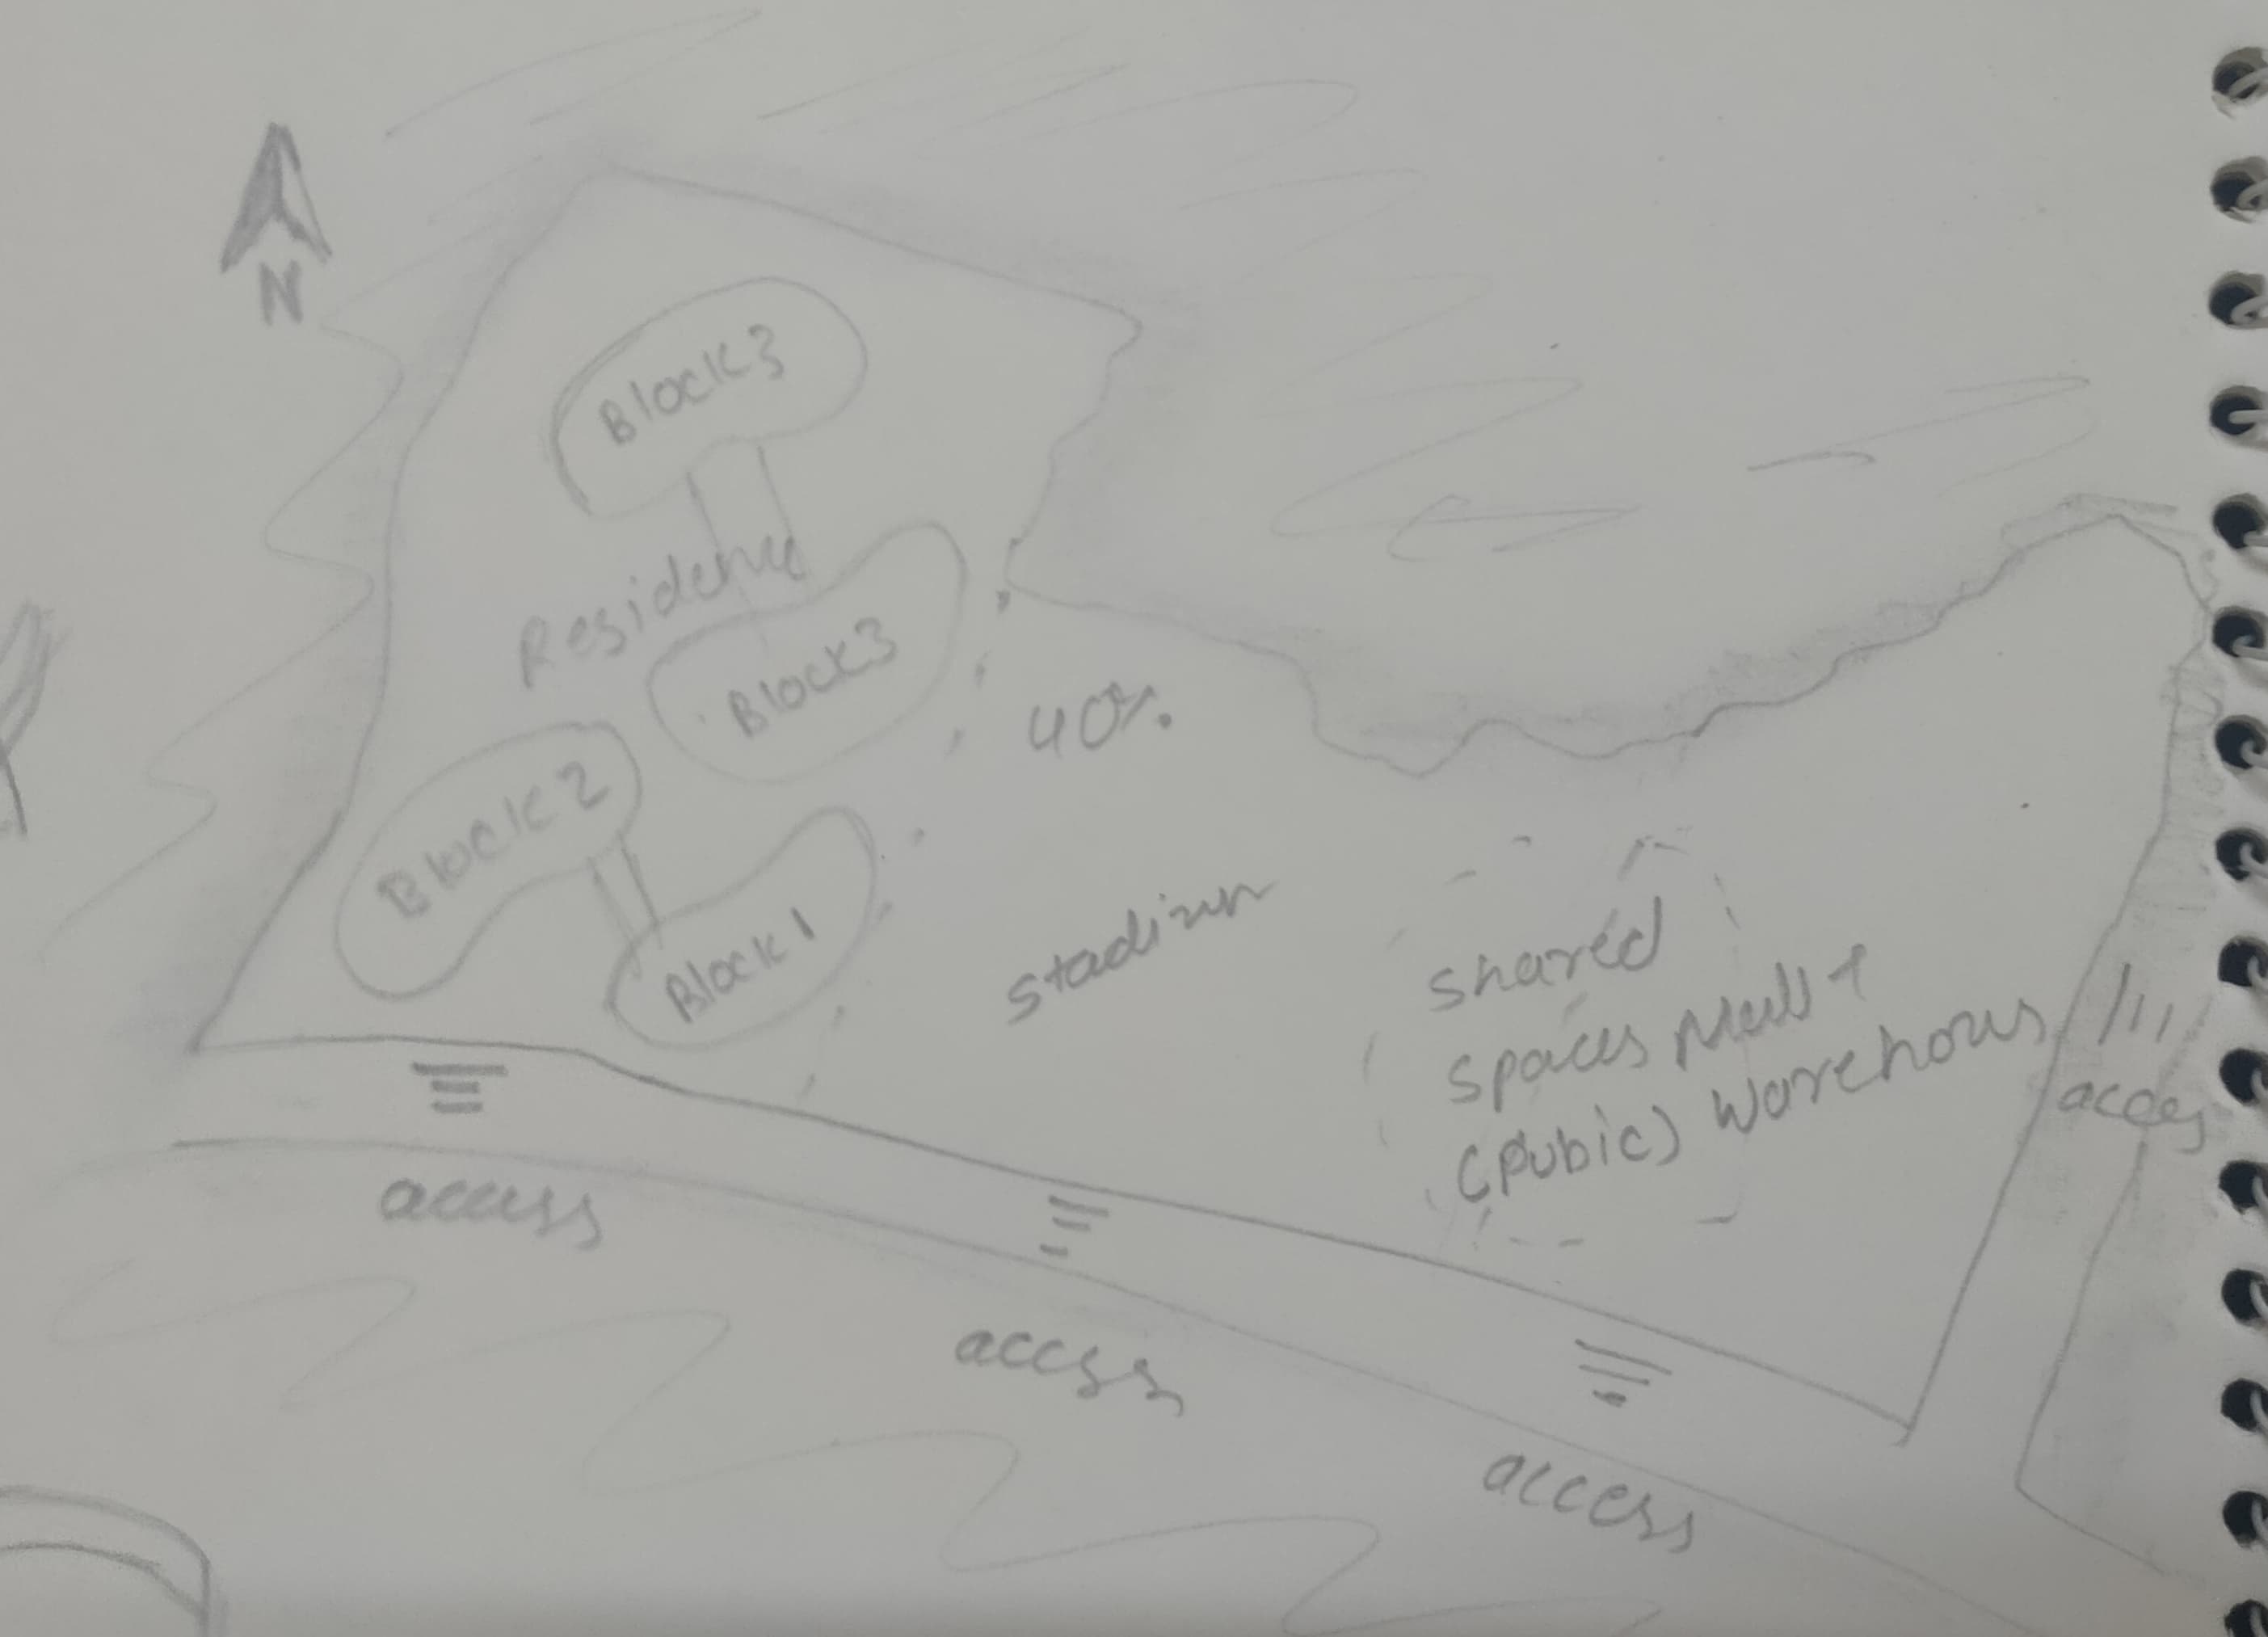 N
Block3
Residence
Block3
40%
Block2
Block1
stadium
shared
spaces Mall +
(pubic) warehous
acces
access
access
access